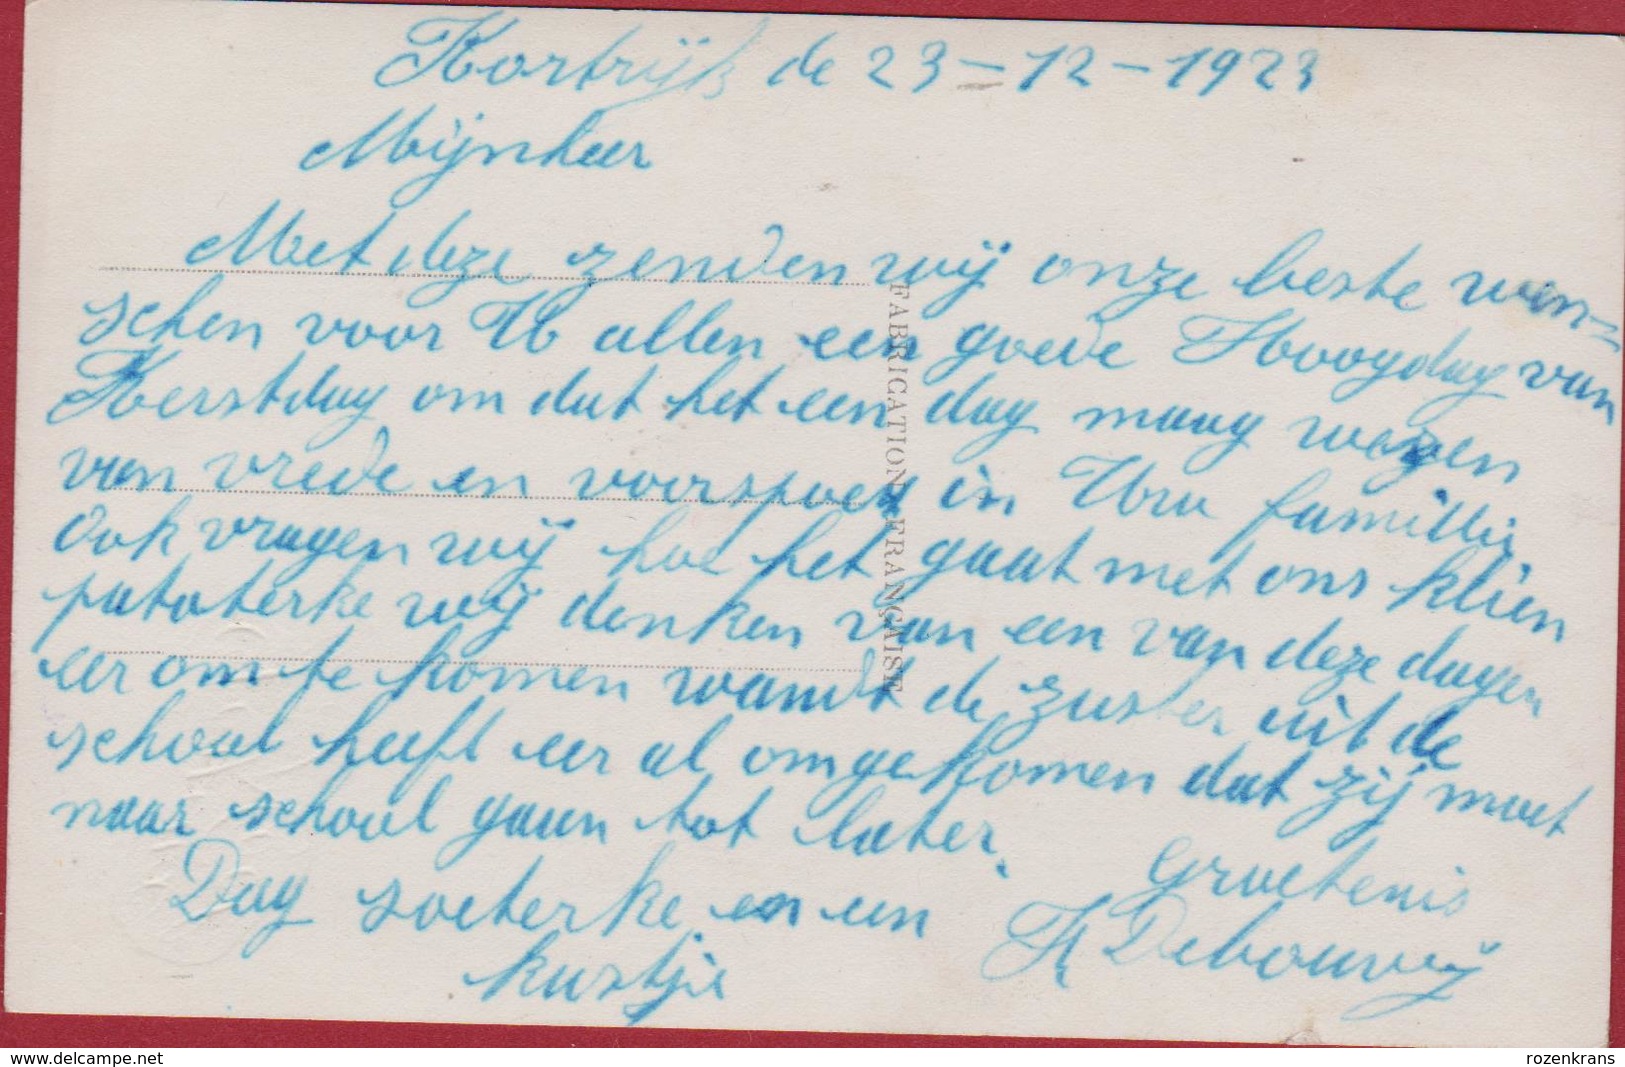 Kortrijk de 23-12-1923
Mijnheer
Met deze zenden wij onze beste wen=
schen voor U allen een goede Hoogdag van
Kerstdag om dat het een dag maag wezen
van vrede en voorspoet in Uw famillie
Ook vragen wij hoe het gaat met ons klien
patoterke wij denken van een van deze dagen
eer om te komen wandt de zuster uit de
school heeft eer al omgekomen dat zij moet
naar school gaan tot later.
Groetenis
Dag soeterke en een
kustje
Debouvry
FABRICATION FRANÇAISE
www.delcampe.net
rozenkrans